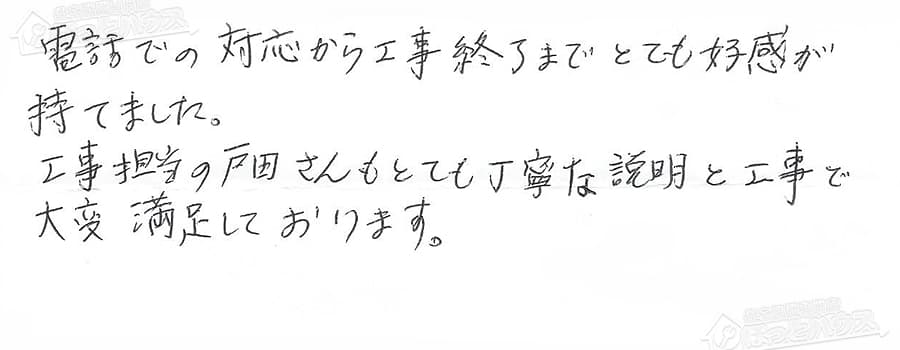 電話での対応から工事終了までとても好感が
持てました。
工事担当の戸田さんもとても丁寧な説明と工事で
大変満足しております。